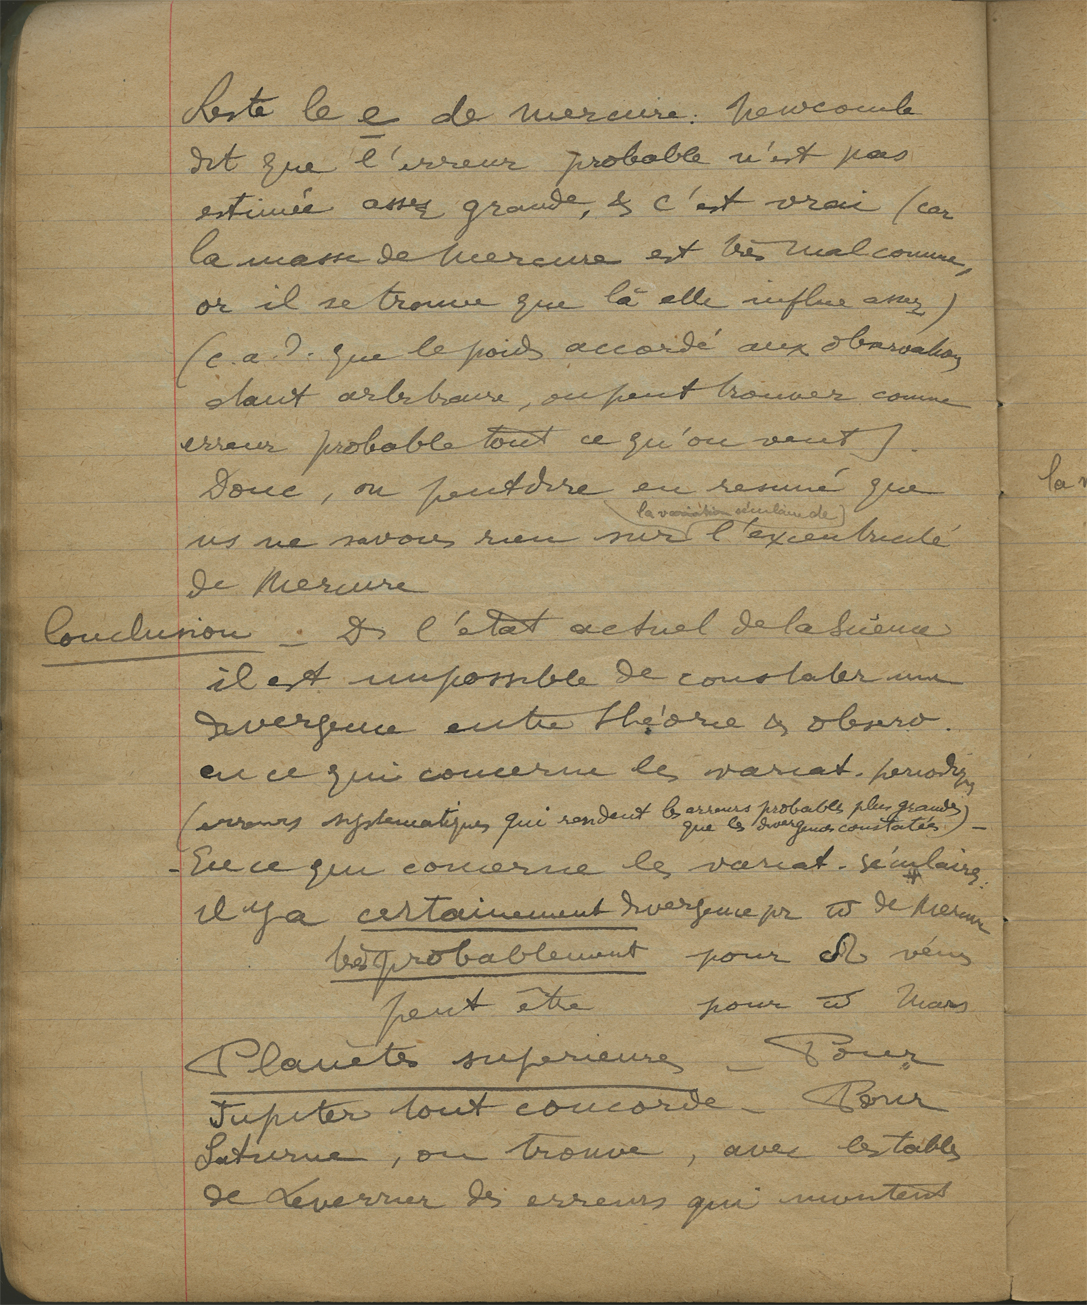 Reste le e de Mercure. Newcomb
dit que l'erreur probable n'est pas
estimée assez grande, & c'est vrai (car
la masse de Mercure est très mal connue,
or il se trouve que là elle influe assez)
(c.a.d. que le poids accordé aux observations
étant arbitraire, on peut trouver comme
erreur probable tout ce qu'on veut).
Donc, on peut dire en resumé que
(la variation séculaire de)
ns ne savons rien sur l'excentricité
de Mercure
Conclusion - Ds l'état actuel de la Science
il est impossible de constater une
divergence entre théorie & observ.
en ce qui concerne les variat. periodiqs
(erreurs systematiques qui rendent les erreurs probables plus grandes
que les divergences constatées) -
- En ce qui concerne les variat. séculaires.
il y a certainement divergence pr ϖ de Mercure
très probablement pour ☊ vénus
peut être pour ϖ Mars
Planètes superieures - Pour
Jupiter tout concorde - Pour
Saturne, on trouve, avec les tables
de Leverrier des erreurs qui montent
la